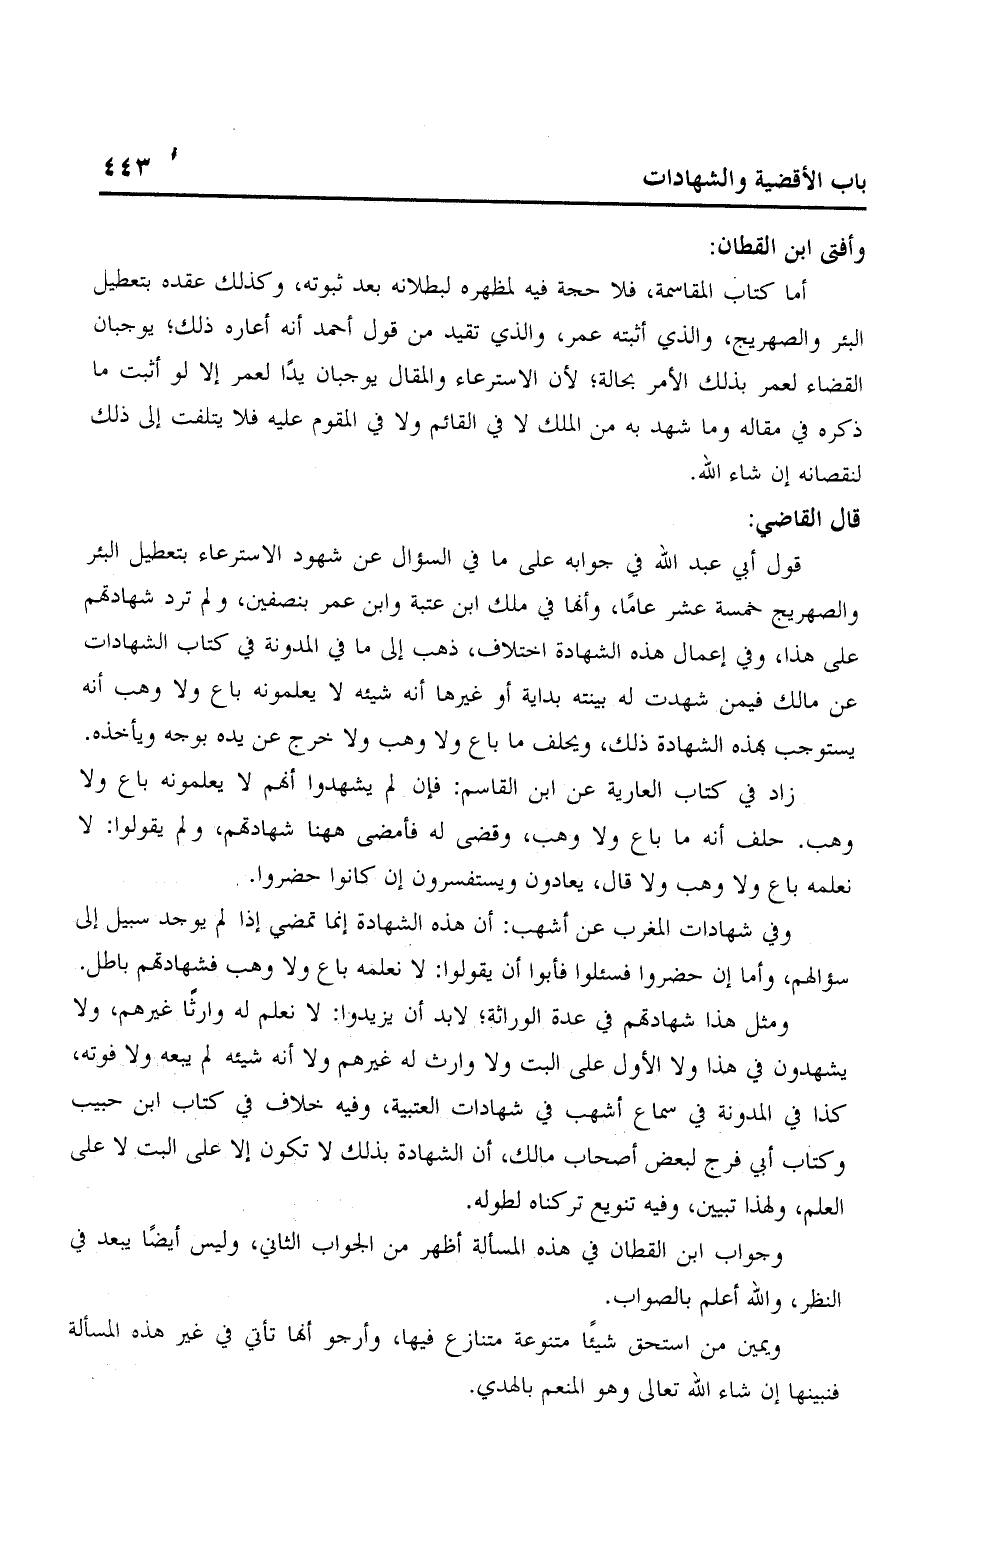 باب الأقضية والشهادات ٤٤٣
وأفتى ابن القطان:
أما كتاب المقاسمة، فلا حجة فيه لمظهره لبطلانه بعد ثبوته، وكذلك عقده بتعطيل
البئر والصهريج، والذي أثبته عمر، والذي تقيد من قول أحمد أنه أعاره ذلك؛ يوجبان
القضاء لعمر بذلك الأمر بحالة؛ لأن الاسترعاء والمقال يوجبان يدًا لعمر إلا لو أثبت ما
ذكره في مقاله وما شهد به من الملك لا في القائم ولا في المقوم عليه فلا يتلفت إلى ذلك
لنقصانه إن شاء الله.
قال القاضي:
قول أبي عبد الله في جوابه على ما في السؤال عن شهود الاسترعاء بتعطيل البئر
والصهريج خمسة عشر عامًا، وأنها في ملك ابن عتبة وابن عمر بنصفين، ولم ترد شهادتهم
على هذا، وفي إعمال هذه الشهادة اختلاف، ذهب إلى ما في المدونة في كتاب الشهادات
عن مالك فيمن شهدت له بينته بداية أو غيرها أنه شيئه لا يعلمونه باع ولا وهب أنه
يستوجب بهذه الشهادة ذلك، ويحلف ما باع ولا وهب ولا خرج عن يده بوجه ويأخذه.
زاد في كتاب العارية عن ابن القاسم: فإن لم يشهدوا أنهم لا يعلمونه باع ولا
وهب. حلف أنه ما باع ولا وهب، وقضى له فأمضى ههنا شهادتهم، ولم يقولوا: لا
نعلمه باع ولا وهب ولا قال، يعادون ويستفسرون إن كانوا حضروا.
وفي شهادات المغرب عن أشهب: أن هذه الشهادة إنما تمضي إذا لم يوجد سبيل إلى
سؤالهم، وأما إن حضروا فسئلوا فأبوا أن يقولوا: لا نعلمه باع ولا وهب فشهادتهم باطل.
ومثل هذا شهادتهم في عدة الوراثة؛ لابد أن يزيدوا: لا نعلم له وارثًا غيرهم، ولا
يشهدون في هذا ولا الأول على البت ولا وارث له غيرهم ولا أنه شيئه لم يبعه ولا فوته،
كذا في المدونة في سماع أشهب في شهادات العتبية، وفيه خلاف في كتاب ابن حبيب
وكتاب أبي فرج لبعض أصحاب مالك، أن الشهادة بذلك لا تكون إلا على البت لا على
العلم، ولهذا تبيين، وفيه تنويع تركناه لطوله.
وجواب ابن القطان في هذه المسألة أظهر من الجواب الثاني، وليس أيضًا يبعد في
النظر، والله أعلم بالصواب.
ويمين من استحق شيئًا متنوعة متنازع فيها، وأرجو أنها تأتي في غير هذه المسألة
فنبينها إن شاء الله تعالى وهو المنعم بالهدي.